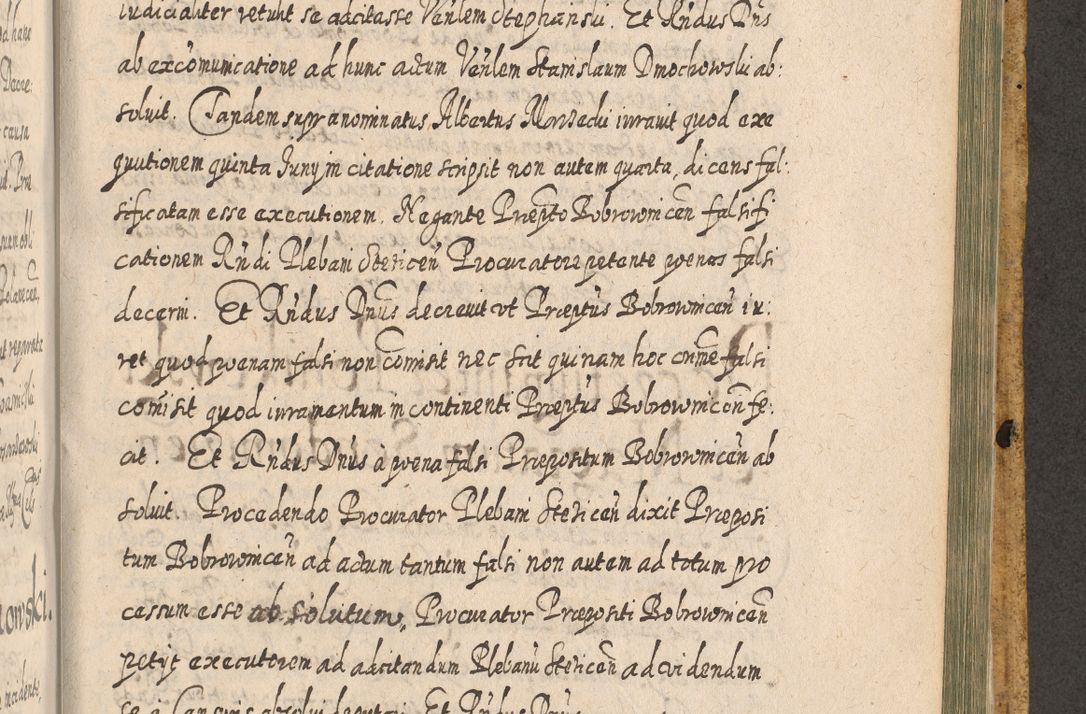 iudicialiter retulit se adcitasse Venlem Stephanski. Et Rndus Dns
ab excomunicatione ad hunc actum Venlem Stanislaum Dmochowski ab:
soluit. Tandem supranominatus Albertus Morsedu iurauit quod exe
quutionem quinta Juny in citatione scripsit non autem quarta, dicens fal:
sificatam esse executionem. Negante Praepto Bobrowniceñ falsifi
cationem Rndi Plebani Steziceñ Procuratore petente poenas falsi
decerni. Et Rndus Dnus decreuit vt Praeptus Bobrowniceñ iu:
ret quod poenam falsi non comisit nec scit quinam hoc crime falsi
comisit quod iuramentum in continenti Praeptus Bobrowniceñ fe:
cit. Et Rndus Dnus à poena falsi Praepositum Bobrowniceñ ab
soluit. Procedendo Procurator Plebani Steziceñ dixit Praeposi
tum Bobrowniceñ ad actum tantum falsi non autem ad totum pro
cessum esse absolutum, Procurator Praepositi Bobrowniceñ
petijt executorem ad adcitandum Plebanu Steziceñ ad videndum
se a Censuris absolui deputari. Et Rndus Dnus